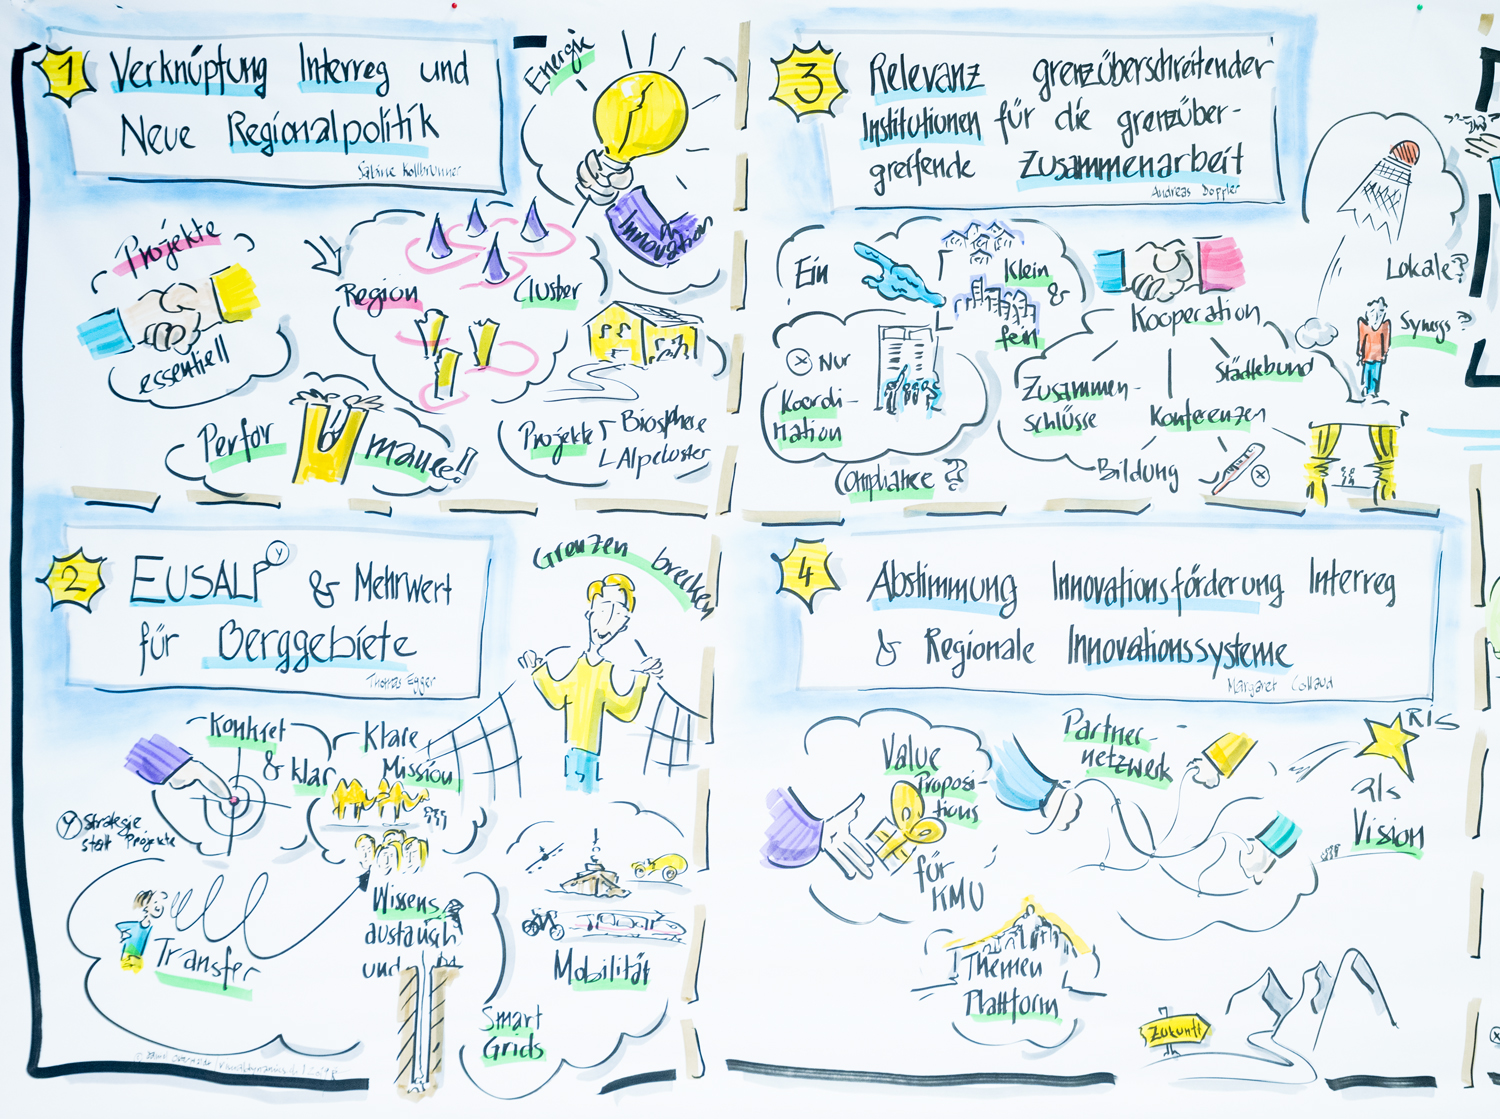 1
Verknüpfung Interreg und
Neue Regionalpolitik
Sabine Kollbrunner
Energie
Innovation
Projekte
essentiell
Region
Cluster
Perfor
mance!!
Projekte
Biosphere
Alpcluster
3
Relevanz grenzüberschreitender
Institutionen für die grenzüber-
greifende Zusammenarbeit
Andreas Doppler
Ein
Klein
&
fein
x Nur
Koordi-
nation
Compliance?
Kooperation
Zusammen-
schlüsse
Städtebund
Konferenzen
Bildung
x
Lokale?
?
2
EUSALP Y & Mehrwert
für Berggebiete
Thomas Egger
Grenzen brechen
Konkret
& klar
Klare
Mission
Y Strategie
statt Projekte
Transfer
Wissens
austausch
und
Smart
Grids
Mobilität
4
Abstimmung Innovationsförderung Interreg
& Regionale Innovationssysteme
Margaret Collaud
Value
Proposi-
tions
für
KMU
Partner-
netzwerk
RIS
RIS
Vision
Themen
Plattform
Zukunft